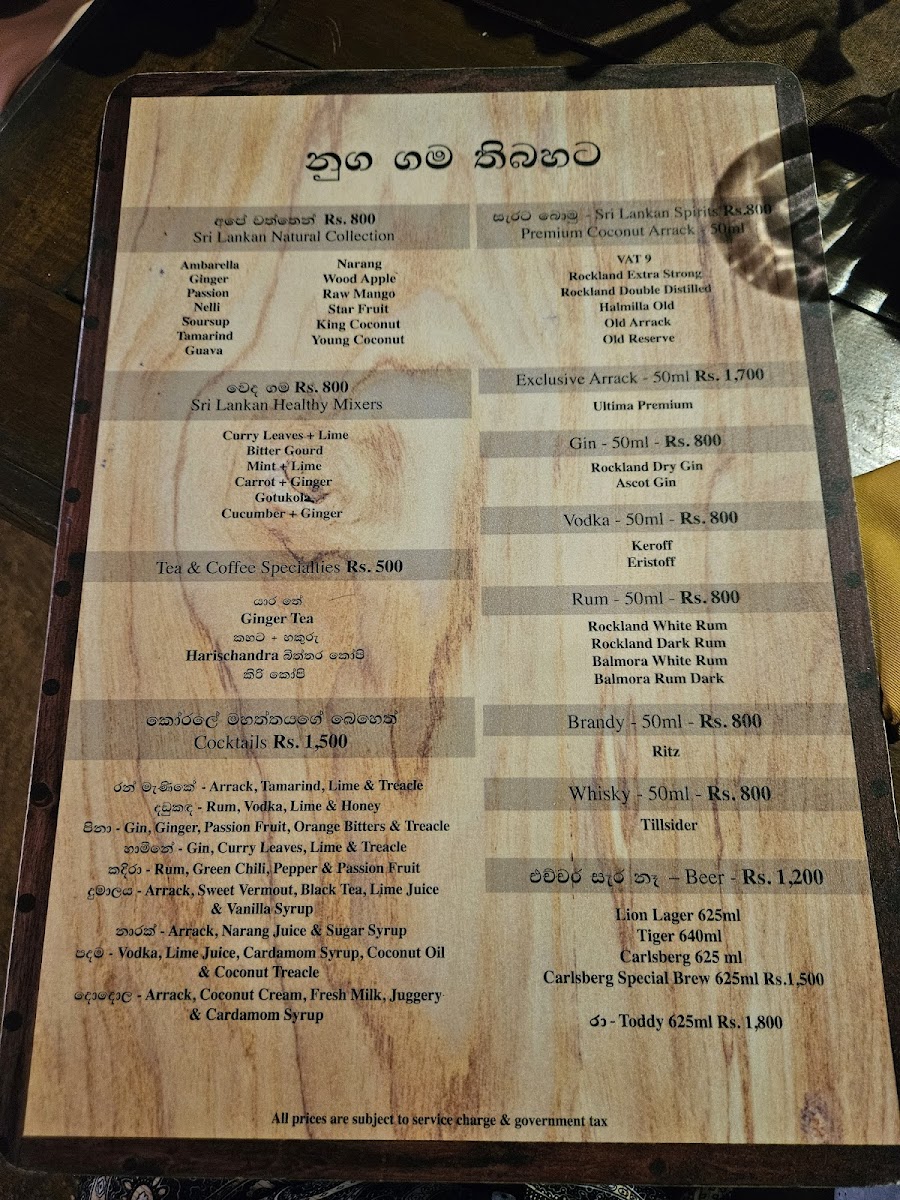 නුග ගම තිබහට
අපේ වත්තෙන් Rs. 800
Sri Lankan Natural Collection
Ambarella
Ginger
Passion
Nelli
Soursup
Tamarind
Guava
Narang
Wood Apple
Raw Mango
Star Fruit
King Coconut
Young Coconut
වෙද ගම Rs. 800
Sri Lankan Healthy Mixers
Curry Leaves + Lime
Bitter Gourd
Mint + Lime
Carrot + Ginger
Gotukola
Cucumber + Ginger
Tea & Coffee Specialties Rs. 500
යාර තේ
Ginger Tea
කහට + හකුරු
Harischandra බිත්තර කෝපි
කිරි කෝපි
කෝරලේ මහත්තයගේ බෙහෙත්
Cocktails Rs. 1,500
රන් මැණිකේ - Arrack, Tamarind, Lime & Treacle
දඩුකඳ - Rum, Vodka, Lime & Honey
පිනා - Gin, Ginger, Passion Fruit, Orange Bitters & Treacle
හාමිනේ - Gin, Curry Leaves, Lime & Treacle
කදිරා - Rum, Green Chili, Pepper & Passion Fruit
දුමාලය - Arrack, Sweet Vermout, Black Tea, Lime Juice
& Vanilla Syrup
නාරක් - Arrack, Narang Juice & Sugar Syrup
පදම - Vodka, Lime Juice, Cardamom Syrup, Coconut Oil
& Coconut Treacle
දොදොල - Arrack, Coconut Cream, Fresh Milk, Juggery
& Cardamom Syrup
සැරට බොමු - Sri Lankan Spirits Rs.800
Premium Coconut Arrack - 50ml
VAT 9
Rockland Extra Strong
Rockland Double Distilled
Halmilla Old
Old Arrack
Old Reserve
Exclusive Arrack - 50ml Rs. 1,700
Ultima Premium
Gin - 50ml - Rs. 800
Rockland Dry Gin
Ascot Gin
Vodka - 50ml - Rs. 800
Keroff
Eristoff
Rum - 50ml - Rs. 800
Rockland White Rum
Rockland Dark Rum
Balmora White Rum
Balmora Rum Dark
Brandy - 50ml - Rs. 800
Ritz
Whisky - 50ml - Rs. 800
Tillsider
එච්චර් සැර නෑ – Beer - Rs. 1,200
Lion Lager 625ml
Tiger 640ml
Carlsberg 625 ml
Carlsberg Special Brew 625ml Rs.1,500
රා - Toddy 625ml Rs. 1,800
All prices are subject to service charge & government tax